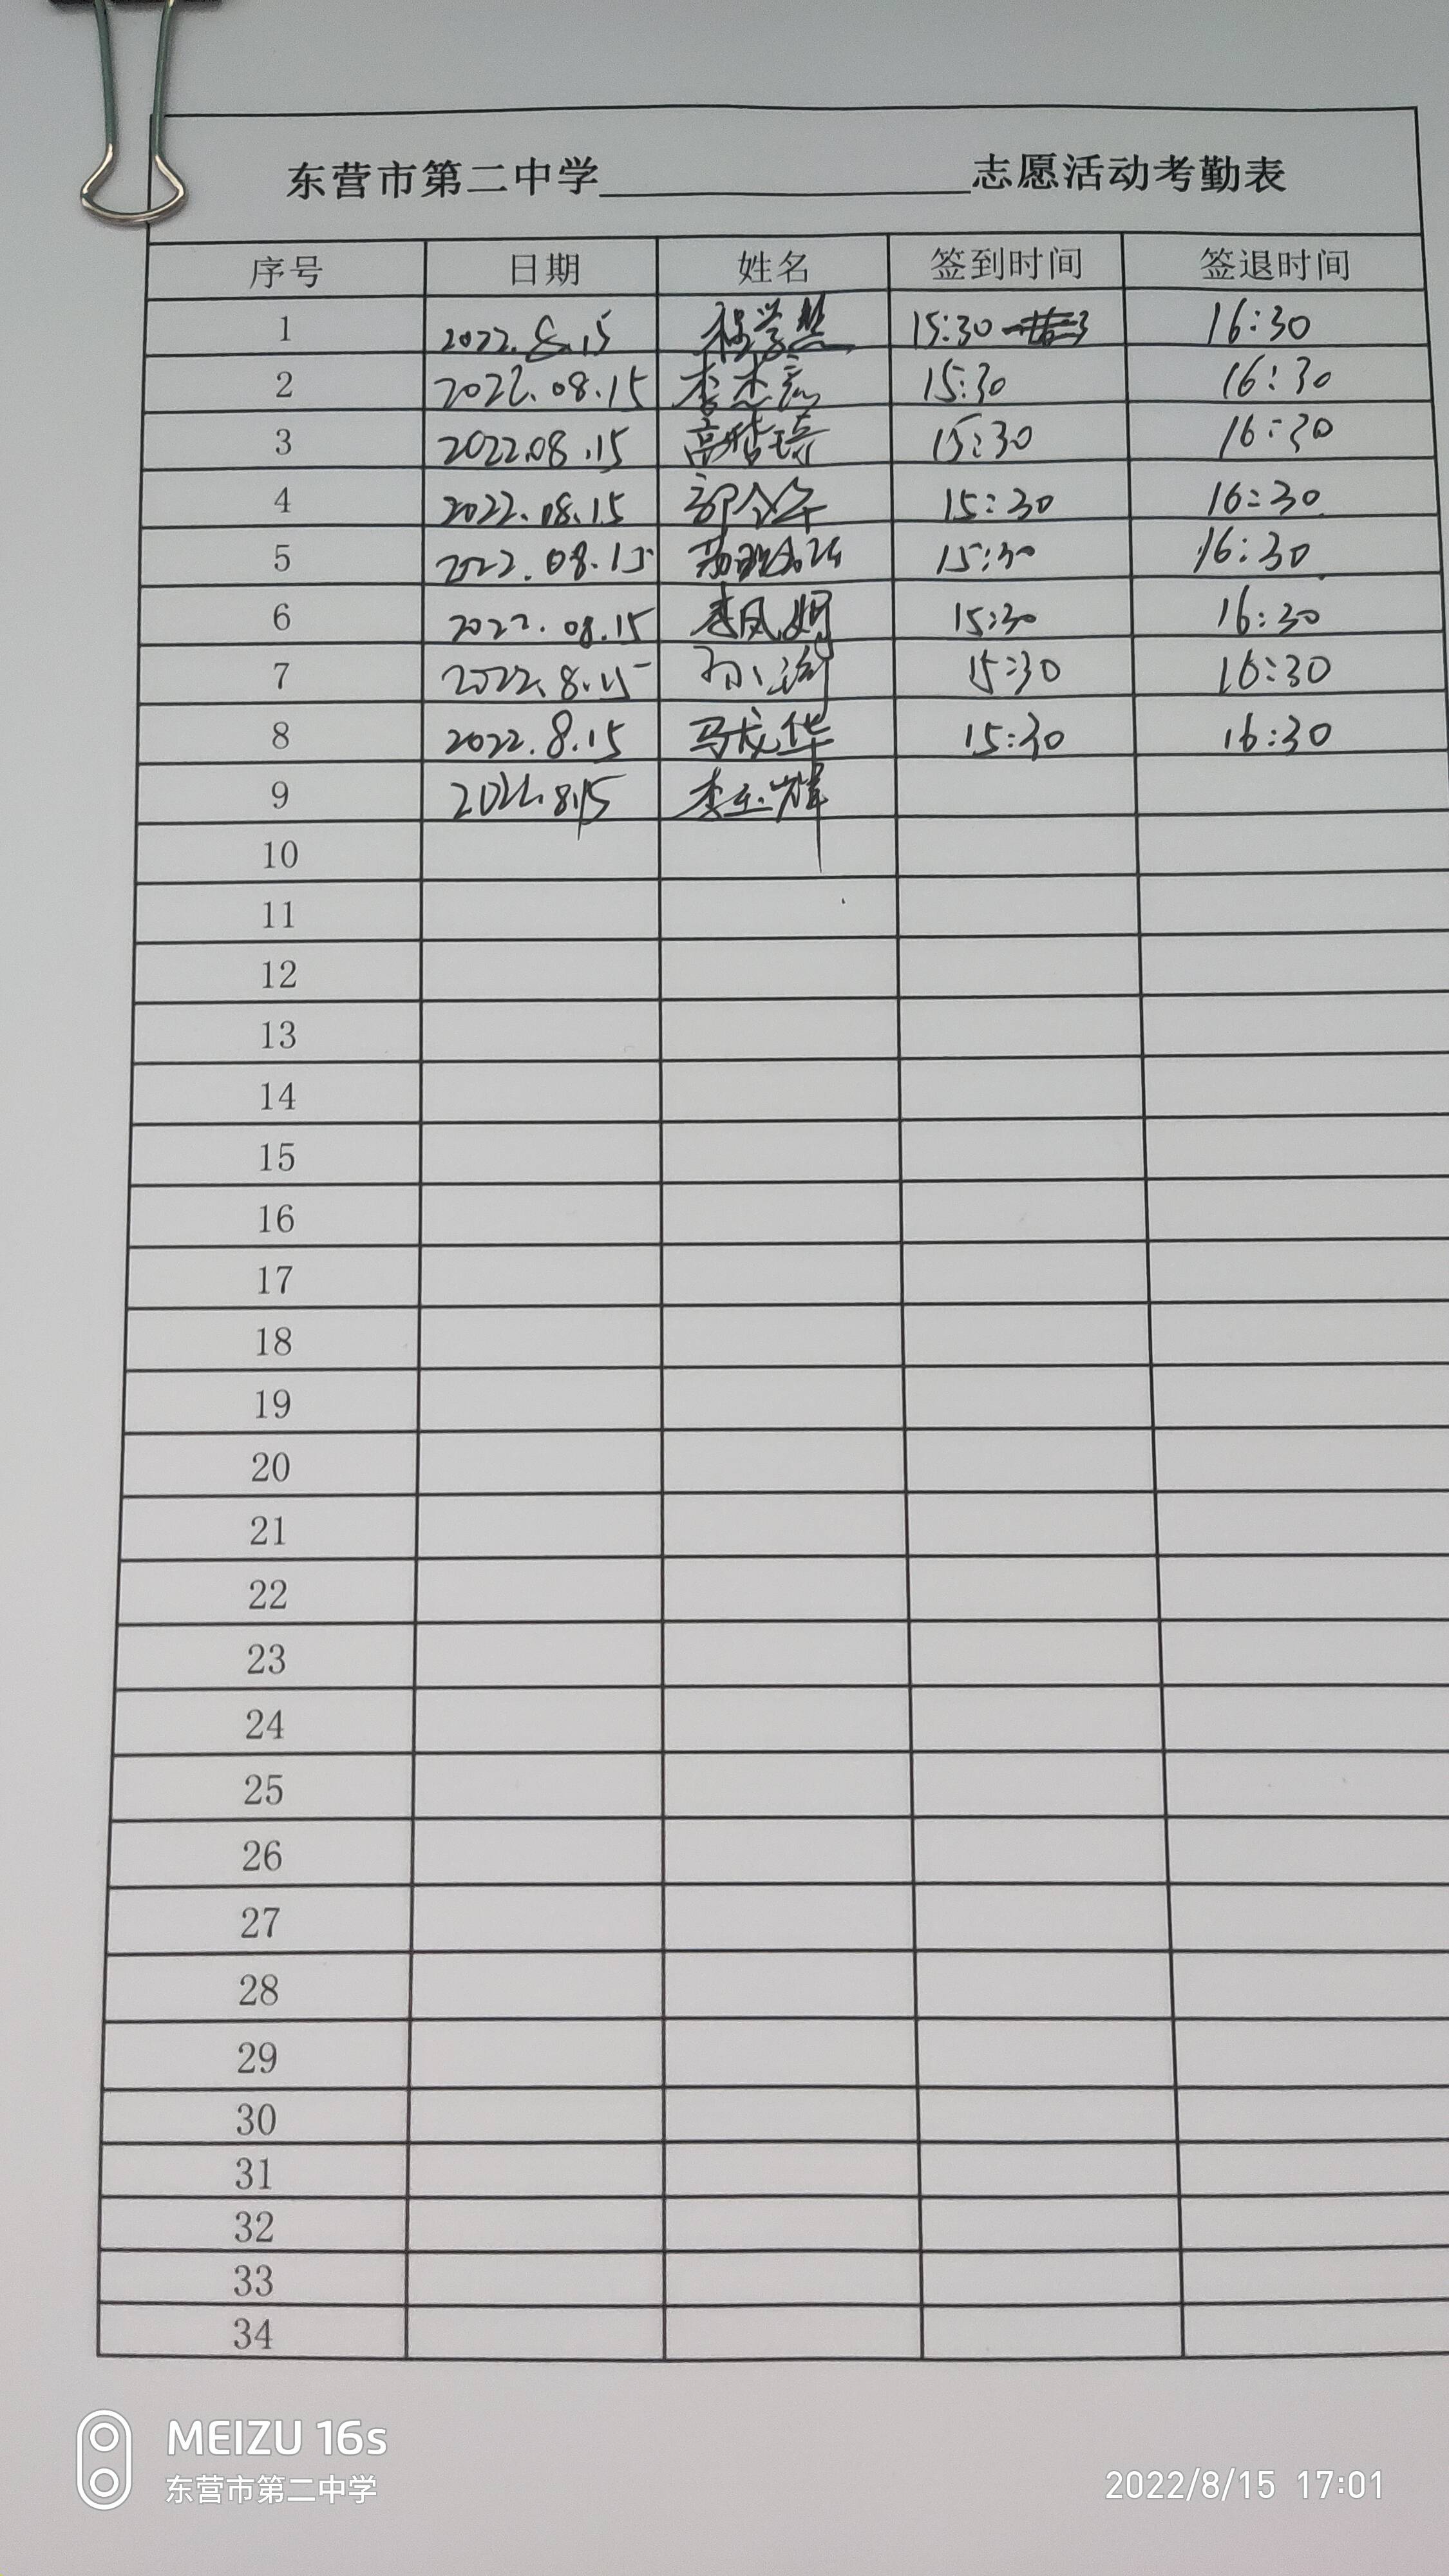 东营市第二中学________________志愿活动考勤表
序号 日期 姓名 签到时间 签退时间
1 2022.8.15 程学慧 15:30 16:30
2 2022.08.15 李杰 15:30 16:30
3 2022.08.15 高哲琦 15:30 16:30
4 2022.08.15 15:30 16:30
5 2022.08.15 15:30 16:30
6 2022.08.15 李凤娟 15:30 16:30
7 2022.8.15 孙 15:30 16:30
8 2022.8.15 马龙华 15:30 16:30
9 2022.8.15 李玉辉
10
11
12
13
14
15
16
17
18
19
20
21
22
23
24
25
26
27
28
29
30
31
32
33
34
MEIZU 16s
东营市第二中学
2022/8/15 17:01